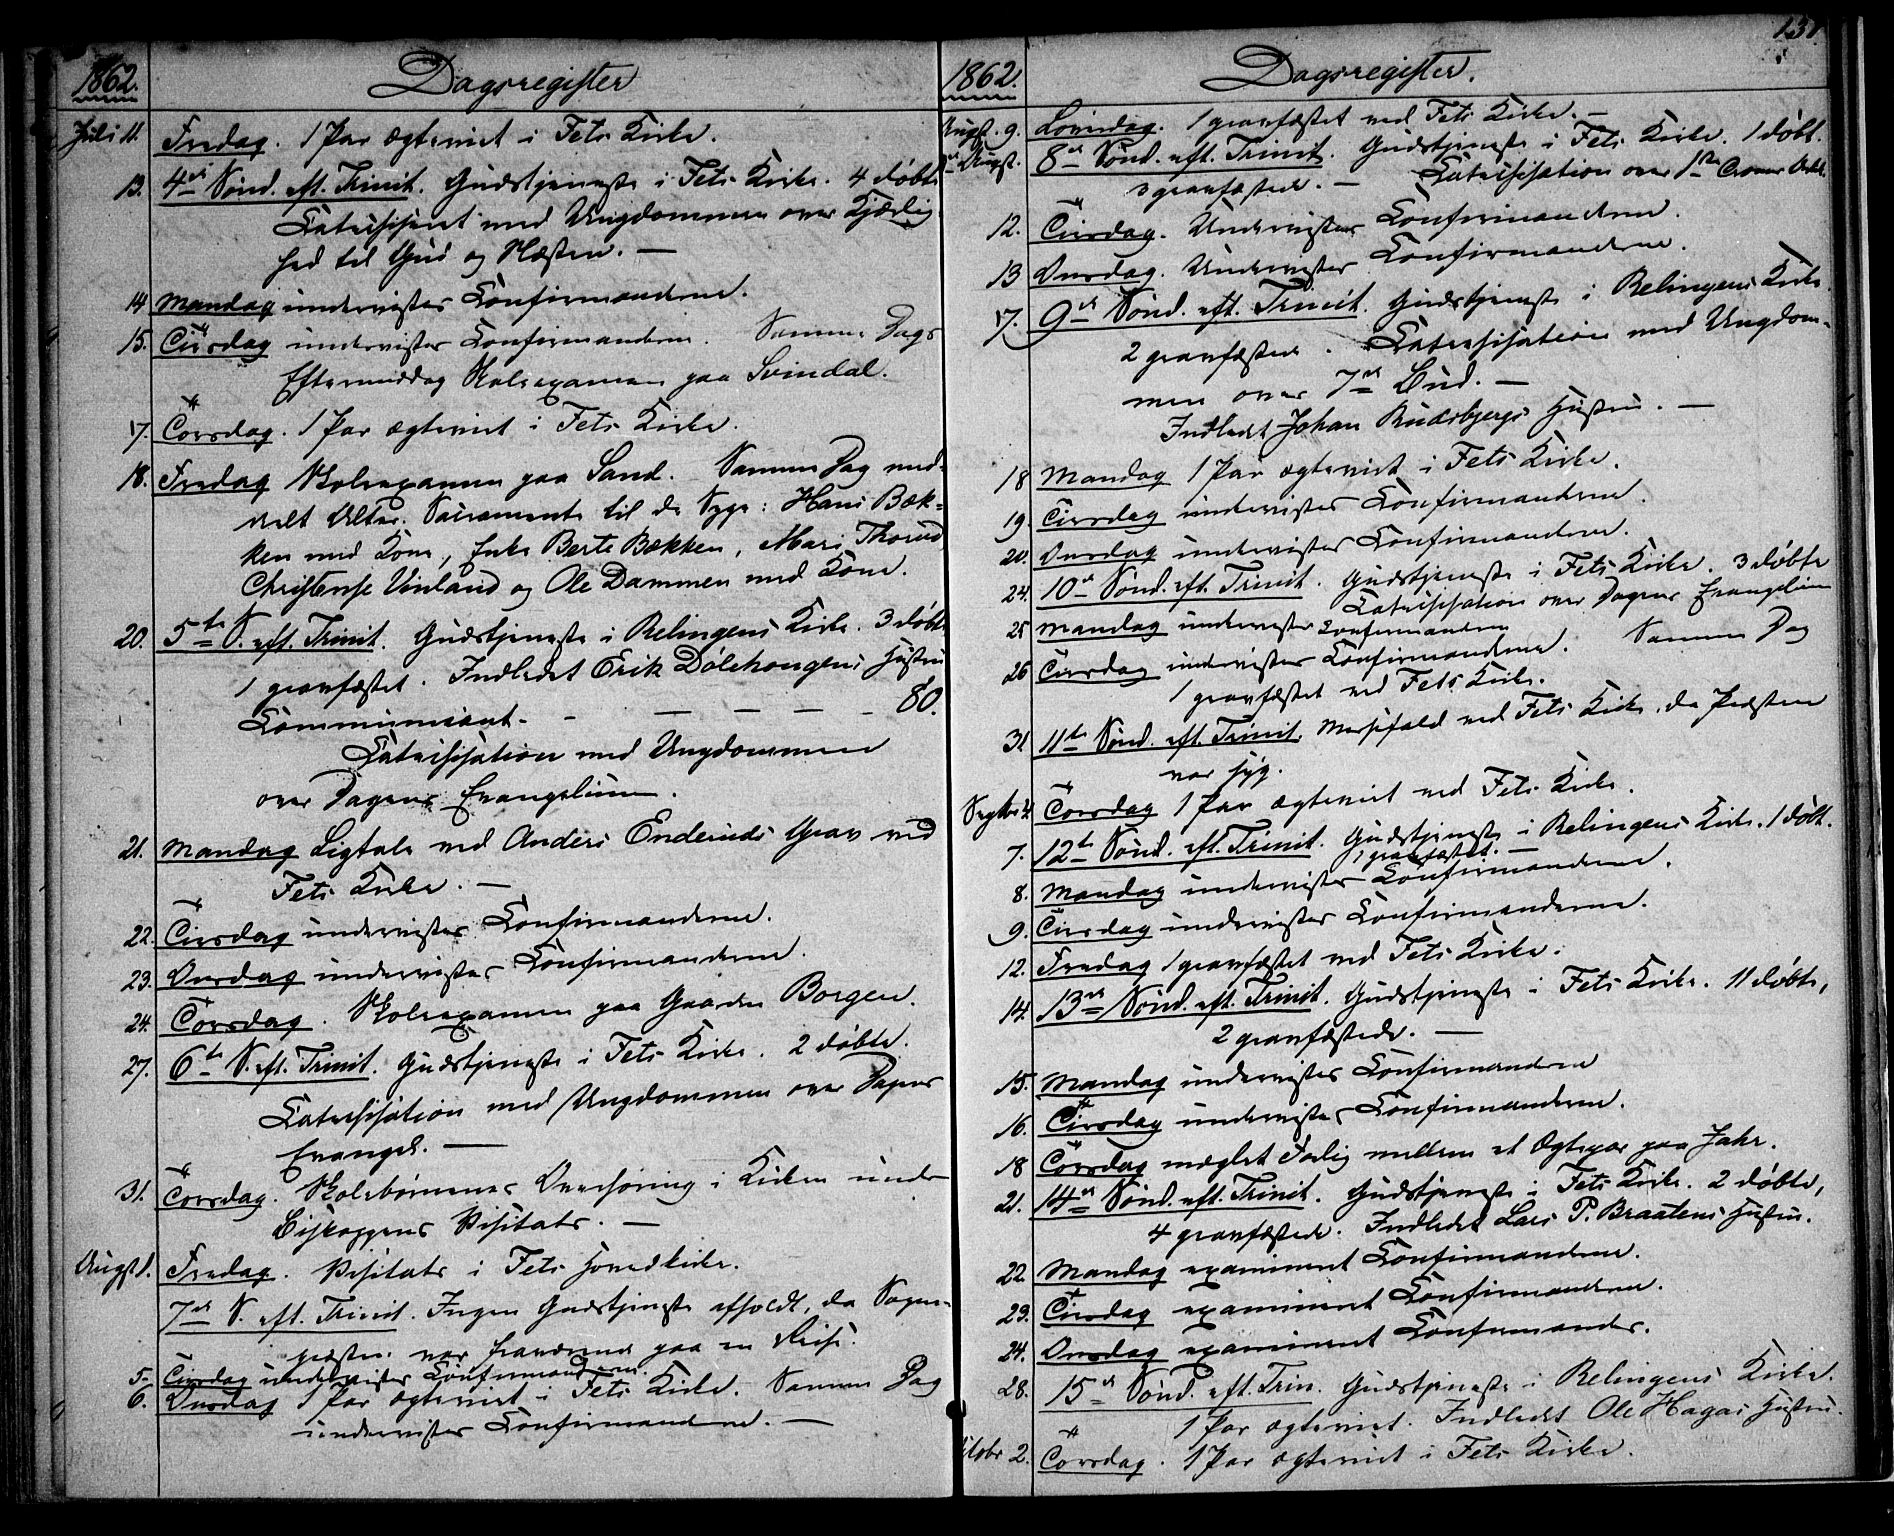 1862.
Dagsregister
Juli 11. Fredag. 1 Par ægteviet i Fets Kirke.
13. 4de Sønd. eft. Trinit. Gudstjeneste i Fets Kirke. 4 døbte
Catechiseret med Ungdommen over Kjærlig-
hed til Gud og Næsten. —
14 Mandag undervistes Confirmanderne.
15. Tirsdag undervistes Confirmanderne. Samme Dags
Eftermiddag Skoleexamen paa Svindal.
17. Torsdag. 1 Par ægteviet i Fets Kirke.
18. Fredag Skoleexamen paa Sand. Samme Dag med-
delt Alter. Sacramente til de Syge: Hans Bæk-
ken med Kone, Enke Berte Bækken, Mari Thorud
Christense Vinland og Ole Dammen med Kone.
20. 5te S. eft. Trinit. Gudstjeneste i Relingens Kirke. 3 døbte
1 gravfæstet. Indledet Erik Dølehougens Hustru
Communicant. - — — — - 80.
Catechisation med Ungdommen
over Dagens Evangelium.
21. Mandag Ligtale ved Anders Enderuds Grav ved
Fets Kirke. —
22. Tirsdag undervistes Confirmanderne.
23. Onsdag undervistes Confirmanderne.
24. Torsdag. Skoleexamen paa Gaarden Borgen.
27. 6te S. eft. Trinit. Gudstjeneste i Fets Kirke. 2 døbte.
Catechisation med Ungdommen over Dagens
Evangel. —
31. Torsdag. Skolebørnenes Overhøring i Kirken under
Biskoppens Visitats. —
Augst 1. Fredag. Visitats i Fets Hovedkirke.
7de S. eft. Trinit. Ingen Gudstjeneste afholdt, da Sogne-
præsten var fraværende paa en Reise.
5. Tirsdag undervistes Confirmanderne
6. Onsdag 1 Par ægteviet i Fets Kirke. Samme Dag
undervistes Confirmanderne. —
131
1862.
Dagsregister.
Augst. 9. Løverdag. 1 gravfæstet ved Fets Kirke. —
Augst. 8de Sønd. eft. Trinit. Gudstjeneste i Fets Kirke. 1 døbt.
3 gravfæstede. — Catechisation over 1ste Troens Artik.
12. Tirsdag. Undervistes Confirmanderne.
13 Onsdag. Undervistes Confirmanderne.
17. 9de Sønd. eft. Trinit. Gudstjeneste i Relingens Kirke
2 gravfæstede. Catechisation med Ungdom-
men over 7de Bud. —
Indledt Johan Rudsbjergs Hustru. —
18 Mandag 1 Par ægteviet i Fets Kirke.
19. Tirsdag undervistes Confirmanderne.
20. Onsdag undervistes Confirmanderne.
24. 10de Sønd. eft. Trinit. Gudstjeneste i Fets Kirke. 3 døbte
Catechisation over Dagens Evangelium
25 Mandag undervistes Confirmanderne
26 Tirsdag undervistes Confirmanderne. Samme Dag
1 gravfæstet ved Fets Kirke.
31 11te Sønd. eft. Trinit. Messefald ved Fets Kirke, da Præsten
var syg.
Septbr 4. Torsdag 1 Par ægteviet ved Fets Kirke.
7. 12te Sønd. eft. Trinit. Gudstjeneste i Relingens Kirke. 1 døbt.
1 gravfæstet. —
8. Mandag undervistes Confirmanderne.
9. Tirsdag undervistes Confirmanderne.
12. Fredag 1 gravfæstet ved Fets Kirke.
14. 13de Sønd. eft. Trinit. Gudstjeneste i Fets Kirke. 11 døbte,
2 gravfæstede. —
15. Mandag undervistes Confirmanderne
16. Tirsdag undervistes Confirmanderne.
18 Torsdag mæglet Forlig mellem et Ægtepar paa Jahr.
21. 14de Sønd. eft. Trinit. Gudstjeneste i Fets Kirke. 2 døbte,
4 gravfæstede. Indledet Lars P. Braatens Hustru.
22. Mandag examineret Confirmanderne.
23. Tirsdag examineret Confirmanderne.
24. Onsdag examineret Confirmander.
28. 15de Sønd. eft. Trin. Gudstjeneste i Relingens Kirke.
1 Par ægteviet. Indledet Ole Hagas Hustru.
Octobr 2. Torsdag. 1 Par ægteviet i Fets Kirke.